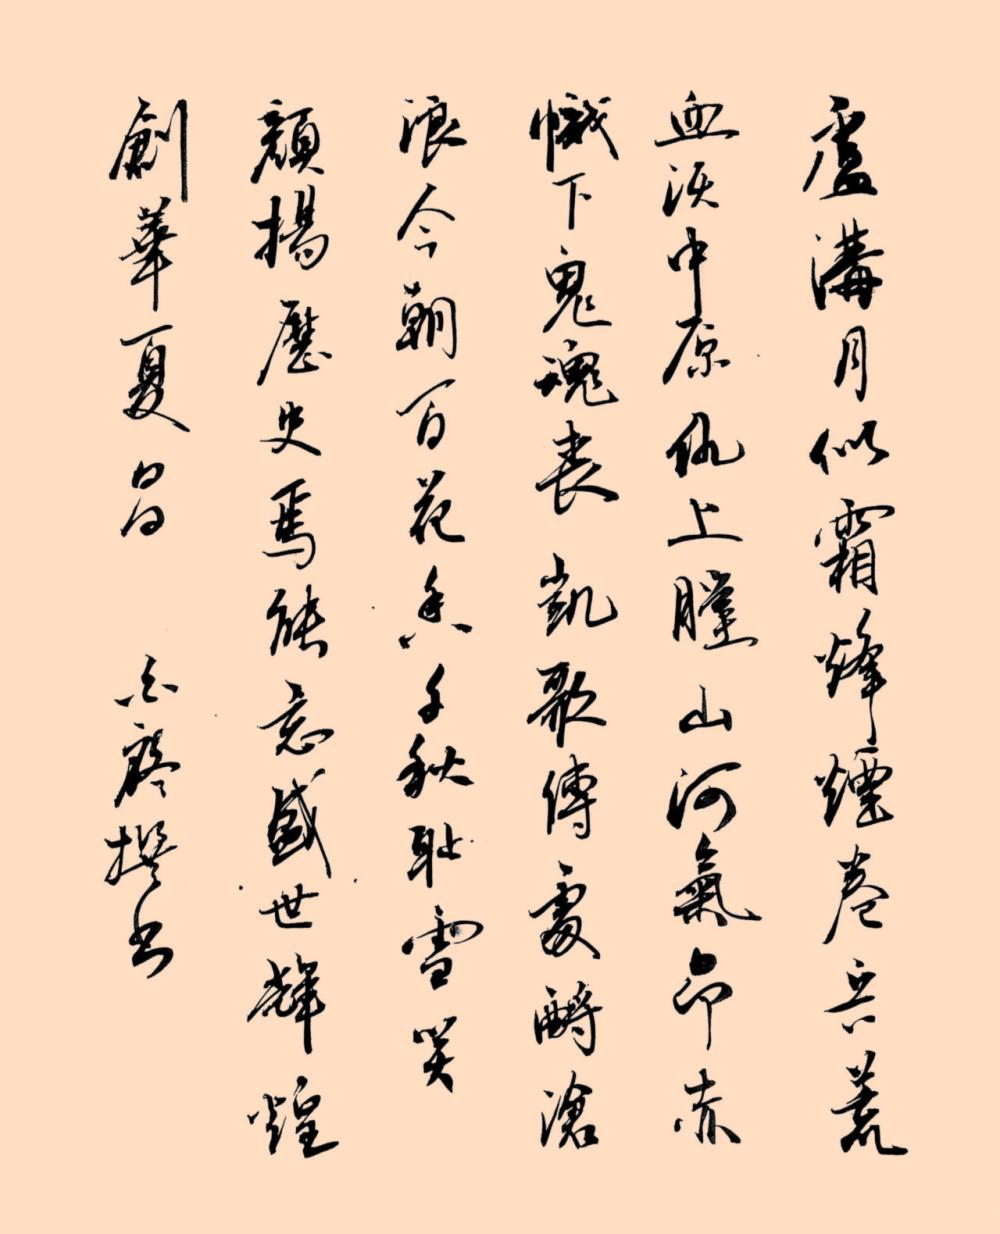 盧溝月似霜烽煙卷兵荒
血淚中原仇上膛山河氣昂赤
幟下鬼魂喪凱歌傳處酹滄
浪今朝百花香千秋恥雪笑
顏揚歷史焉能忘盛世輝煌
創華夏昌 撰书